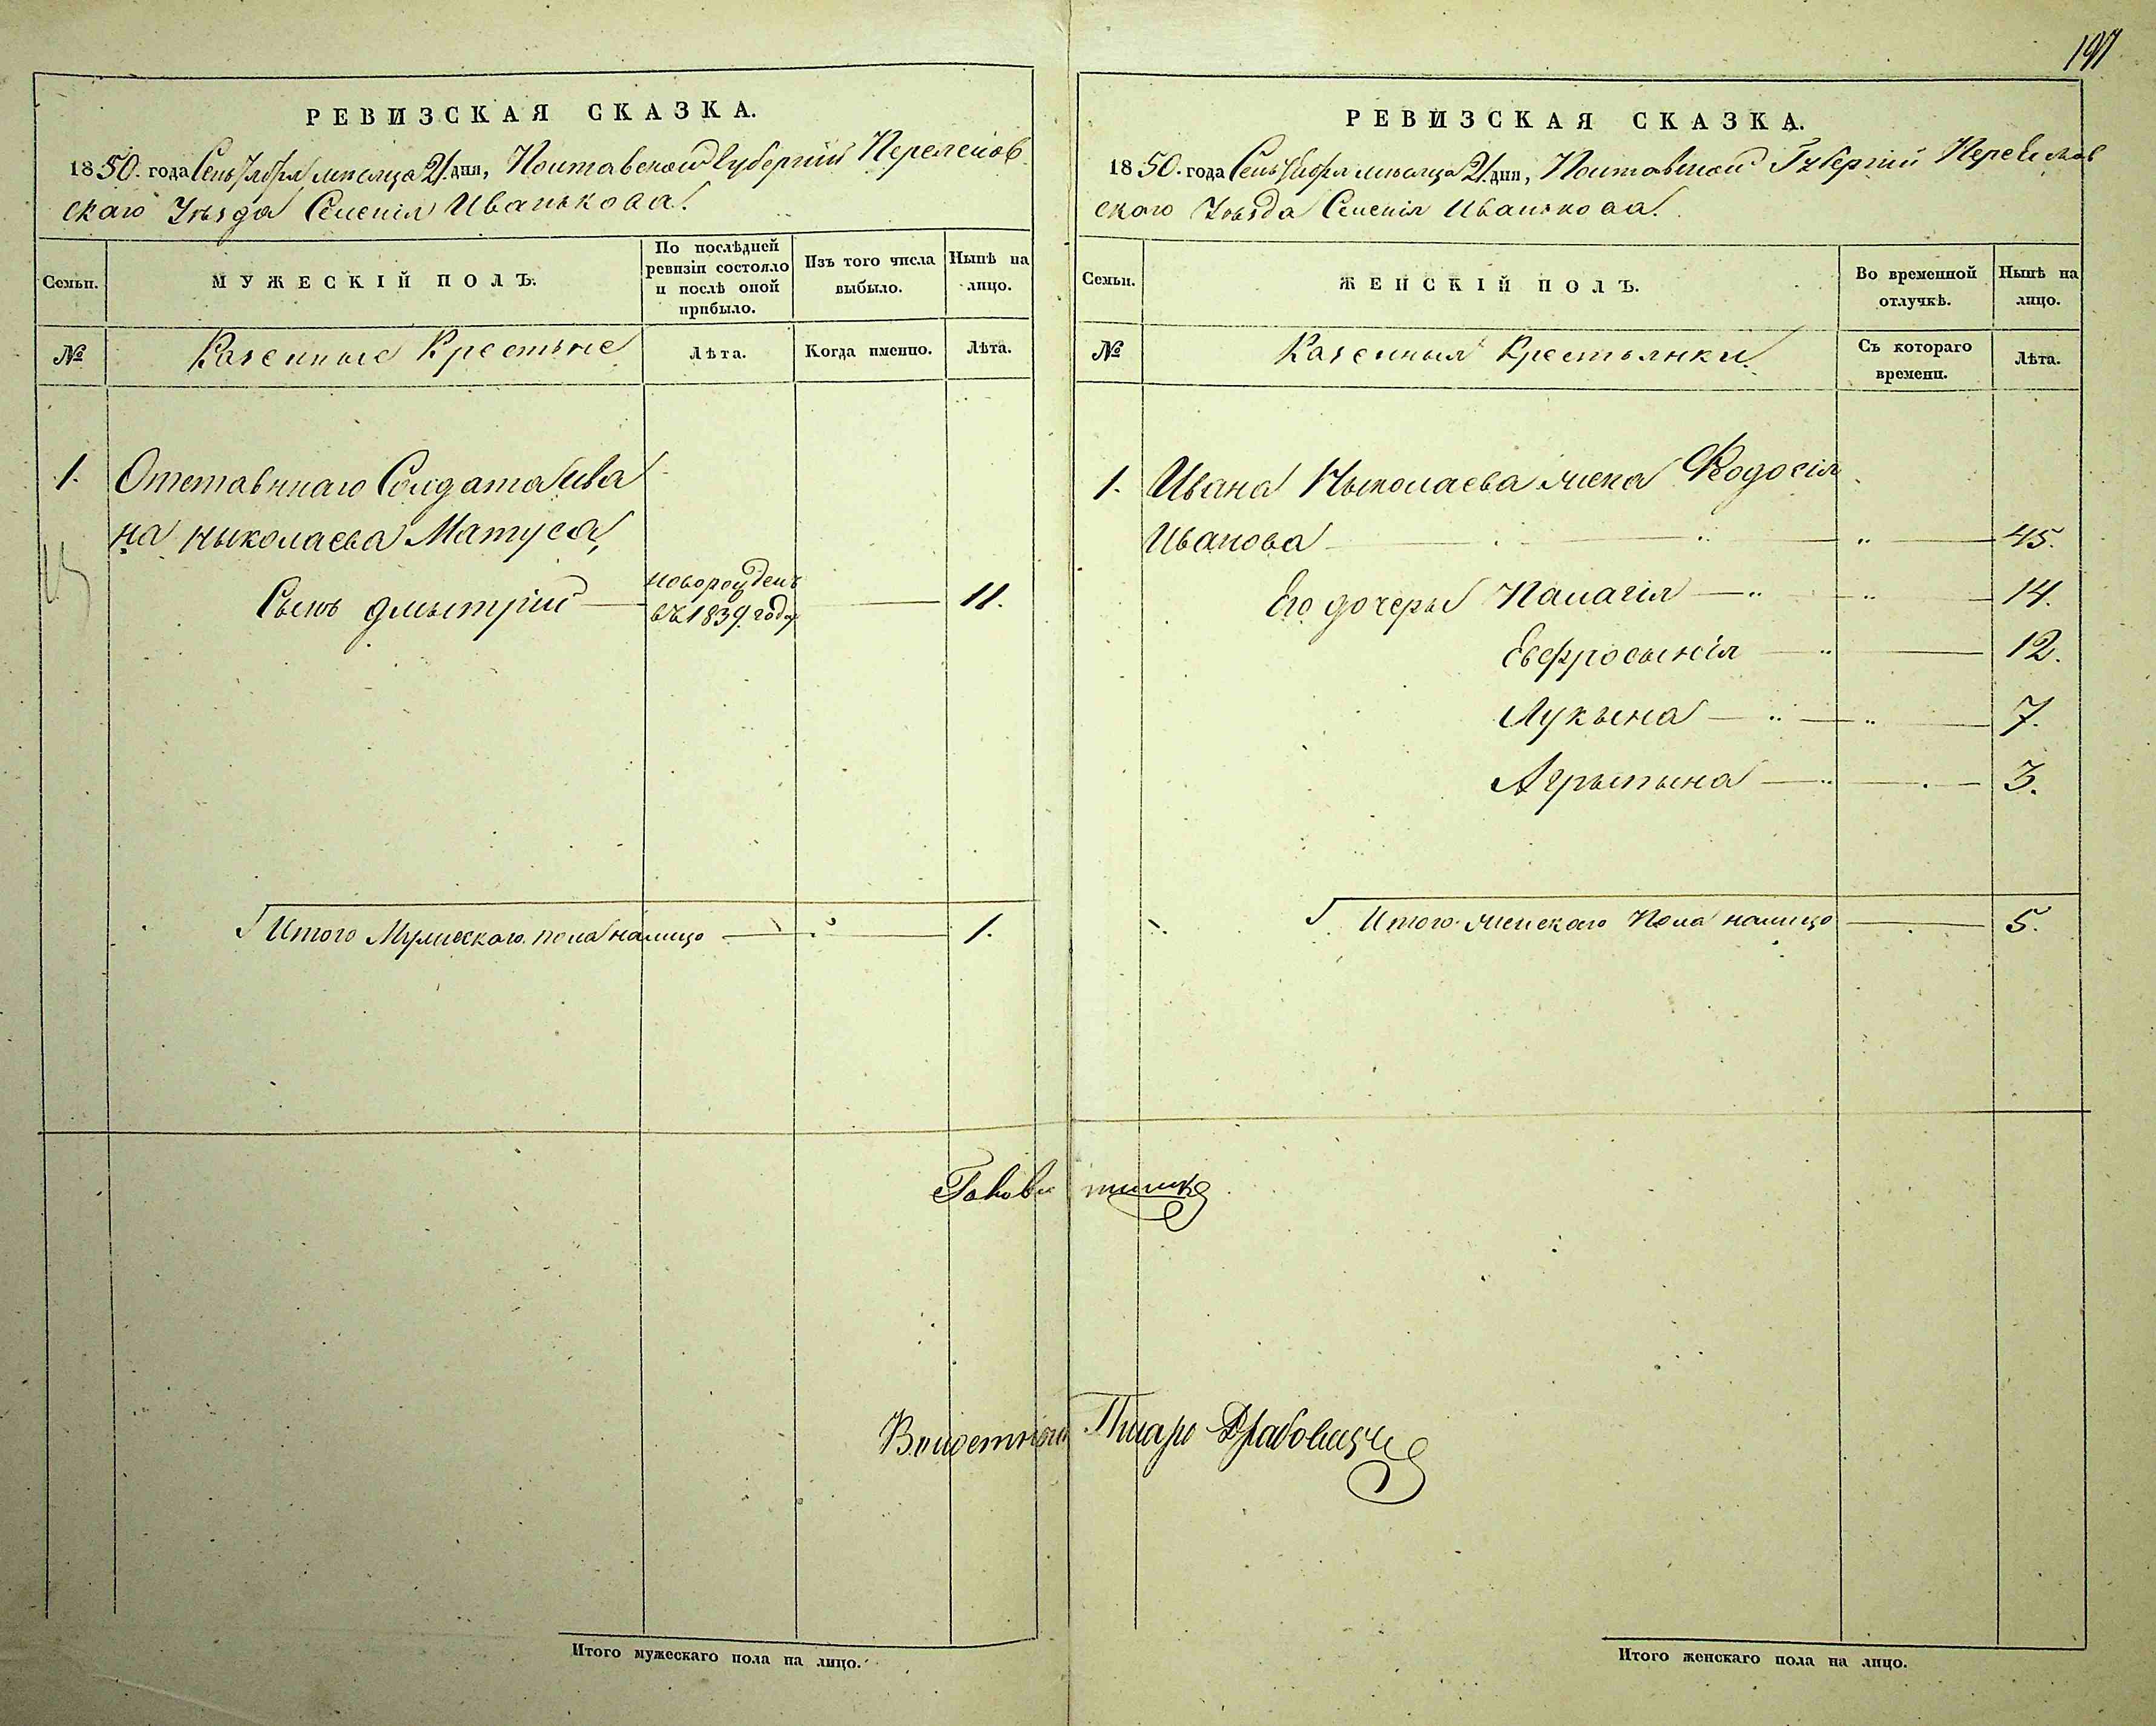 197
РЕВИЗСКАЯ СКАЗКА.
1850. года Сентября месяца 21. дня, Полтавской Губерніи Переяслов
скаго Уезда Селенія Иванькова.
Семьи.
МУЖЕСКІЙ ПОЛЪ.
По послѣдней ревизіи состояло и послѣ оной прибыло.
Изъ того числа выбыло.
Нынѣ на лицо.
№
Казенные Крестьяне
Лѣта.
Когда именно.
Лѣта.
1. Отставннаго Солдата Ива
на Ныколаева Матуса,
Сынъ Дмытрій новорожденъ въ 1839. году 11.
Итого Мужескаго пола налицо 1.
Итого мужескаго пола на лицо.
РЕВИЗСКАЯ СКАЗКА.
1850. года Сентября месяца 21. дня, Полтавской Губерніи Переяслов
скаго Уезда Селенія Иванькова.
Семьи.
ЖЕНСКІЙ ПОЛЪ.
Во временной отлучкѣ.
Нынѣ на лицо.
№
Казенныя Крестьянки.
Съ котораго времени.
Лѣта.
1. Ивана Ныколаева жена Феодосія
Иванова 45.
Его дочеры Палагія 14.
Евфросынія 12.
Лукына 7.
Агрыпына 3.
Итого женскаго Пола налицо 5.
Волостный Писарь
Итого женскаго пола на лицо.